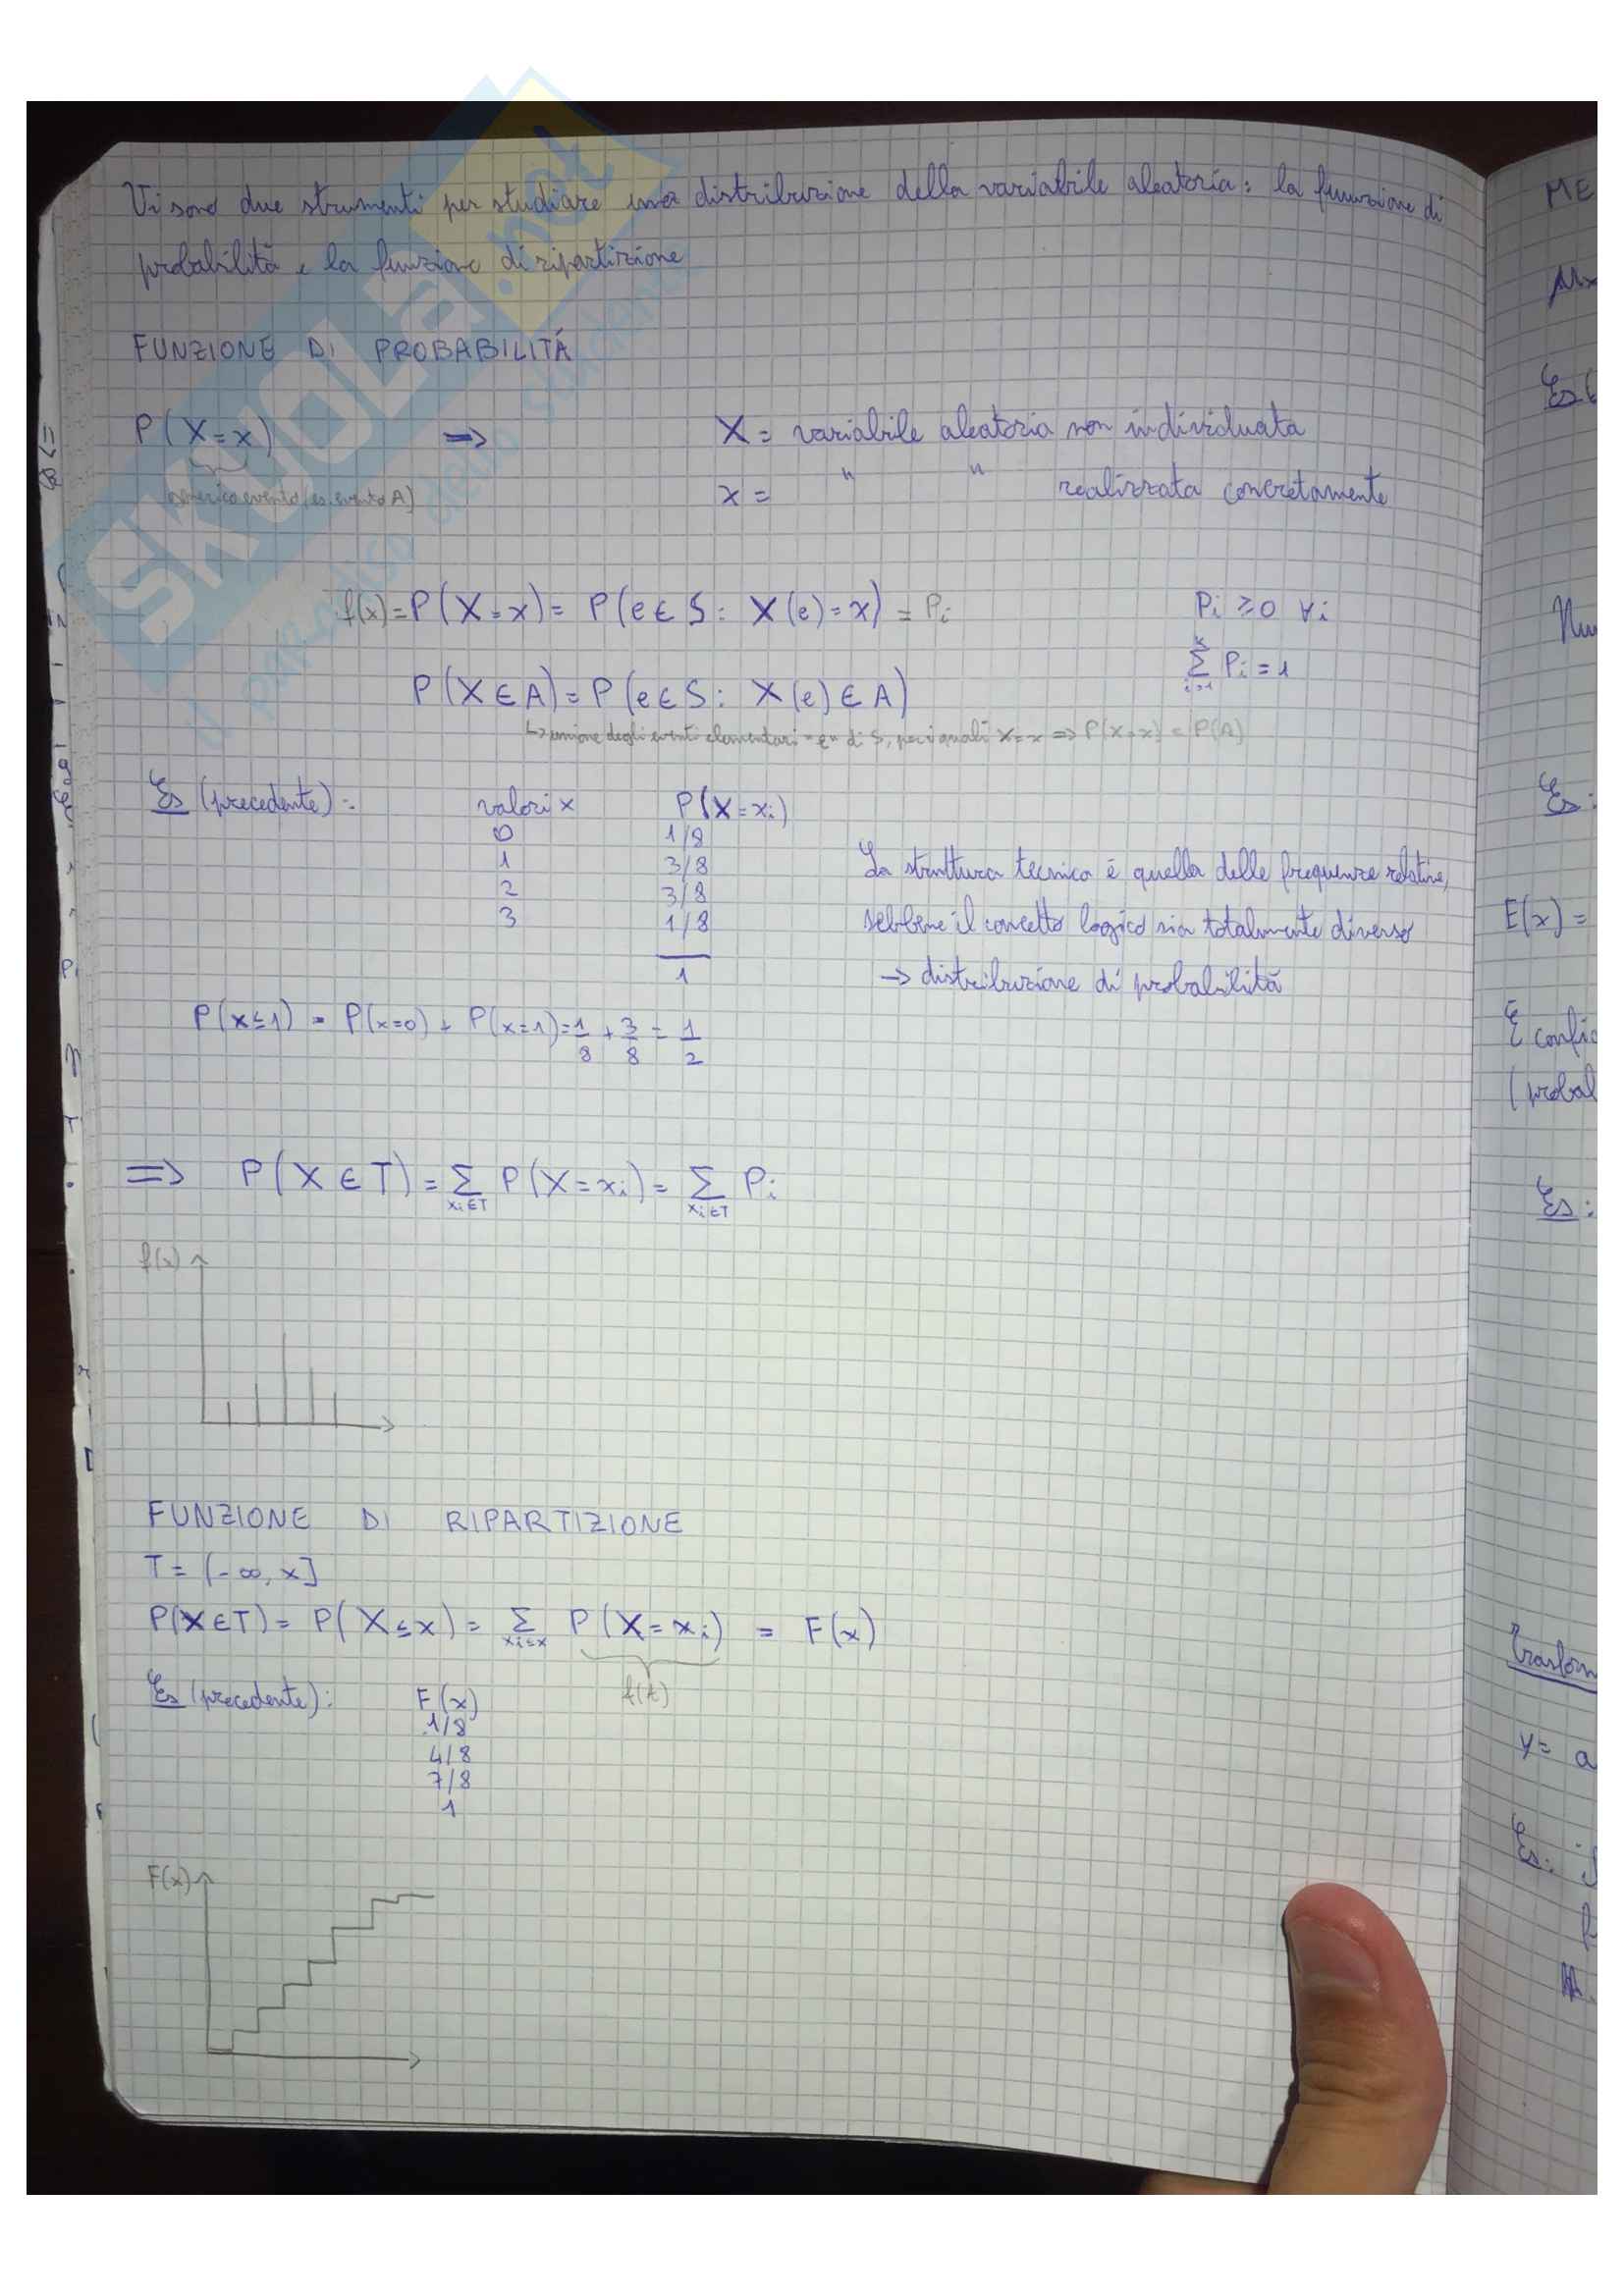 Vi sono due strumenti per studiare una distribuzione della variabile aleatoria: la funzione di
probabilità e la funzione di ripartizione
FUNZIONE DI PROBABILITÁ
P(X=x) => X = variabile aleatoria non individuata
(generico evento, es. evento A) x = " " realizzata concretamente
f(x)=P(X=x)= P(e∈S: X(e)=x) = Pi Pi ≥0 ∀i
P(X∈A)=P(e∈S: X(e)∈A) k Σ i=1 Pi=1
↳ unione degli eventi elementari "e" di S, per i quali X=x => P(X=x) = P(A)
Es (precedente): valori x P(X=xi)
0 1/8
1 3/8
2 3/8
3 1/8
1
La struttura tecnica é quella delle frequenze relative,
sebbene il concetto logico sia totalmente diverso
-> distribuzione di probabilità
P(x≤1) = P(x=0) + P(x=1)=1/8 + 3/8 = 1/2
=> P(X∈T)= Σ xi∈T P(X=xi)= Σ xi∈T Pi
f(x)
FUNZIONE DI RIPARTIZIONE
T= (-∞, x]
P(X∈T)= P(X≤x)= Σ xi≤x P(X=xi) = F(x)
f(t)
Es (precedente): F(x)
1/8
4/8
7/8
1
F(x)
ME
Es
Nu
Es:
E(x) =
E confi
(probal
Es:
trasform
y= a
Es:
SKUOLa.net
il paradiso dello studente